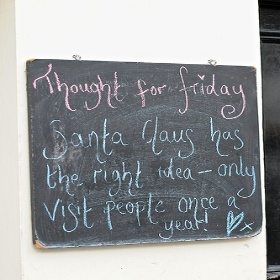 Thought for friday
Santa Claus has
the right idea – only
visit people once a
year! x